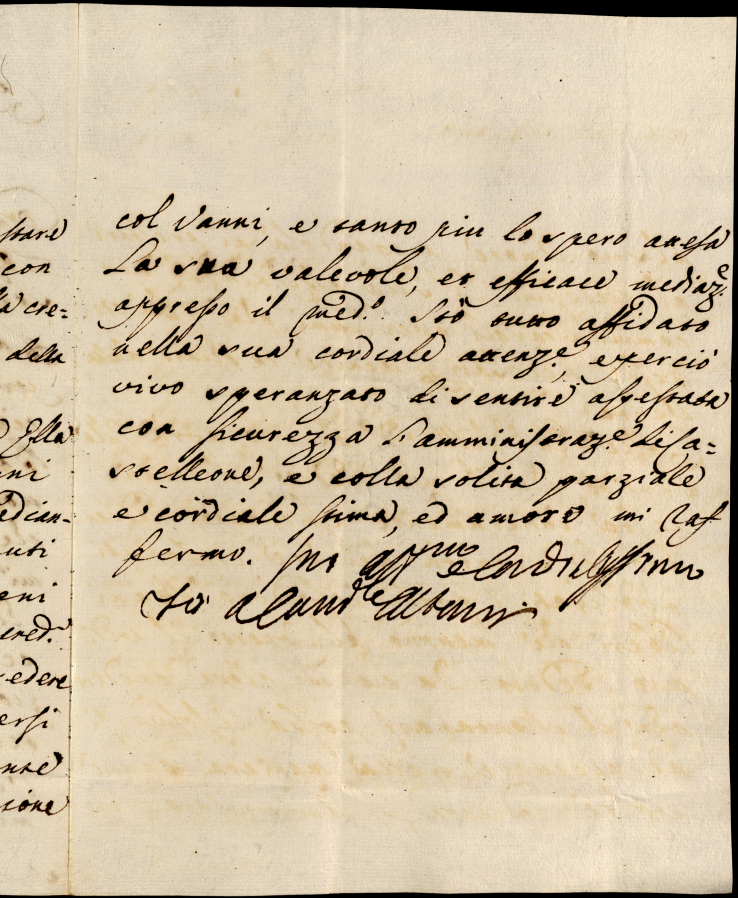 stare
con
la cre=
della
Ella
ni
edian-
uti
eni
cred.
edere
ersi
nte
sione
col Vanni, e tanto piu lo spero attesa
La sua valevole, et efficace mediaz.e
appresso il med.o Stò tutto affidato
nella sua cordiale attenz.e, e perciò
vivo speranzato di sentire assestata
con sicurezza l'amministraz.e di Ca=
stelleone, e colla solita parziale
e cordiale stima, ed amore mi raf
fermo. Suo aff.mo e Cordialissimo
A Card.le Albani